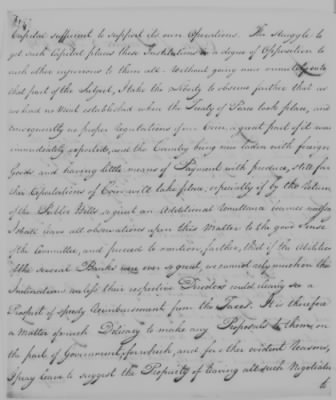 Capital sufficient to support its own Operations. The Struggle to
get such Capital places these Institutions in a degree of Opposition to
each other injurious to them all. Without going more minutely into
that part of the Subject, I take the Liberty to observe further that as
we had no Mint established when the Treaty of Peace took place, and
consequently no proper Regulations of our Coin, a great part of it was
immediately exported, and the Country being now laden with foreign
Goods and having little means of Payment with produce, still far-
ther Exportations of Coin will take place; especially if by the
of the Public Bills so great an Additional Remittance becomes necessary
I shall leave all observations upon this Matter to the good Sense
of the Committee, and proceed to mention, farther, that if the Abilities
of the several Banks were ever so great, we cannot rely much on the
Inclination unless their respective Directors could clearly see a
Prospect of speedy Reimbursement from the Taxes. It is therefore
a Matter of much Delicacy to make any Proposals to them, on
the part of Government; for which, and for other evident Reasons,
I pray leave to suggest the Propriety of leaving all such Negotiations
to